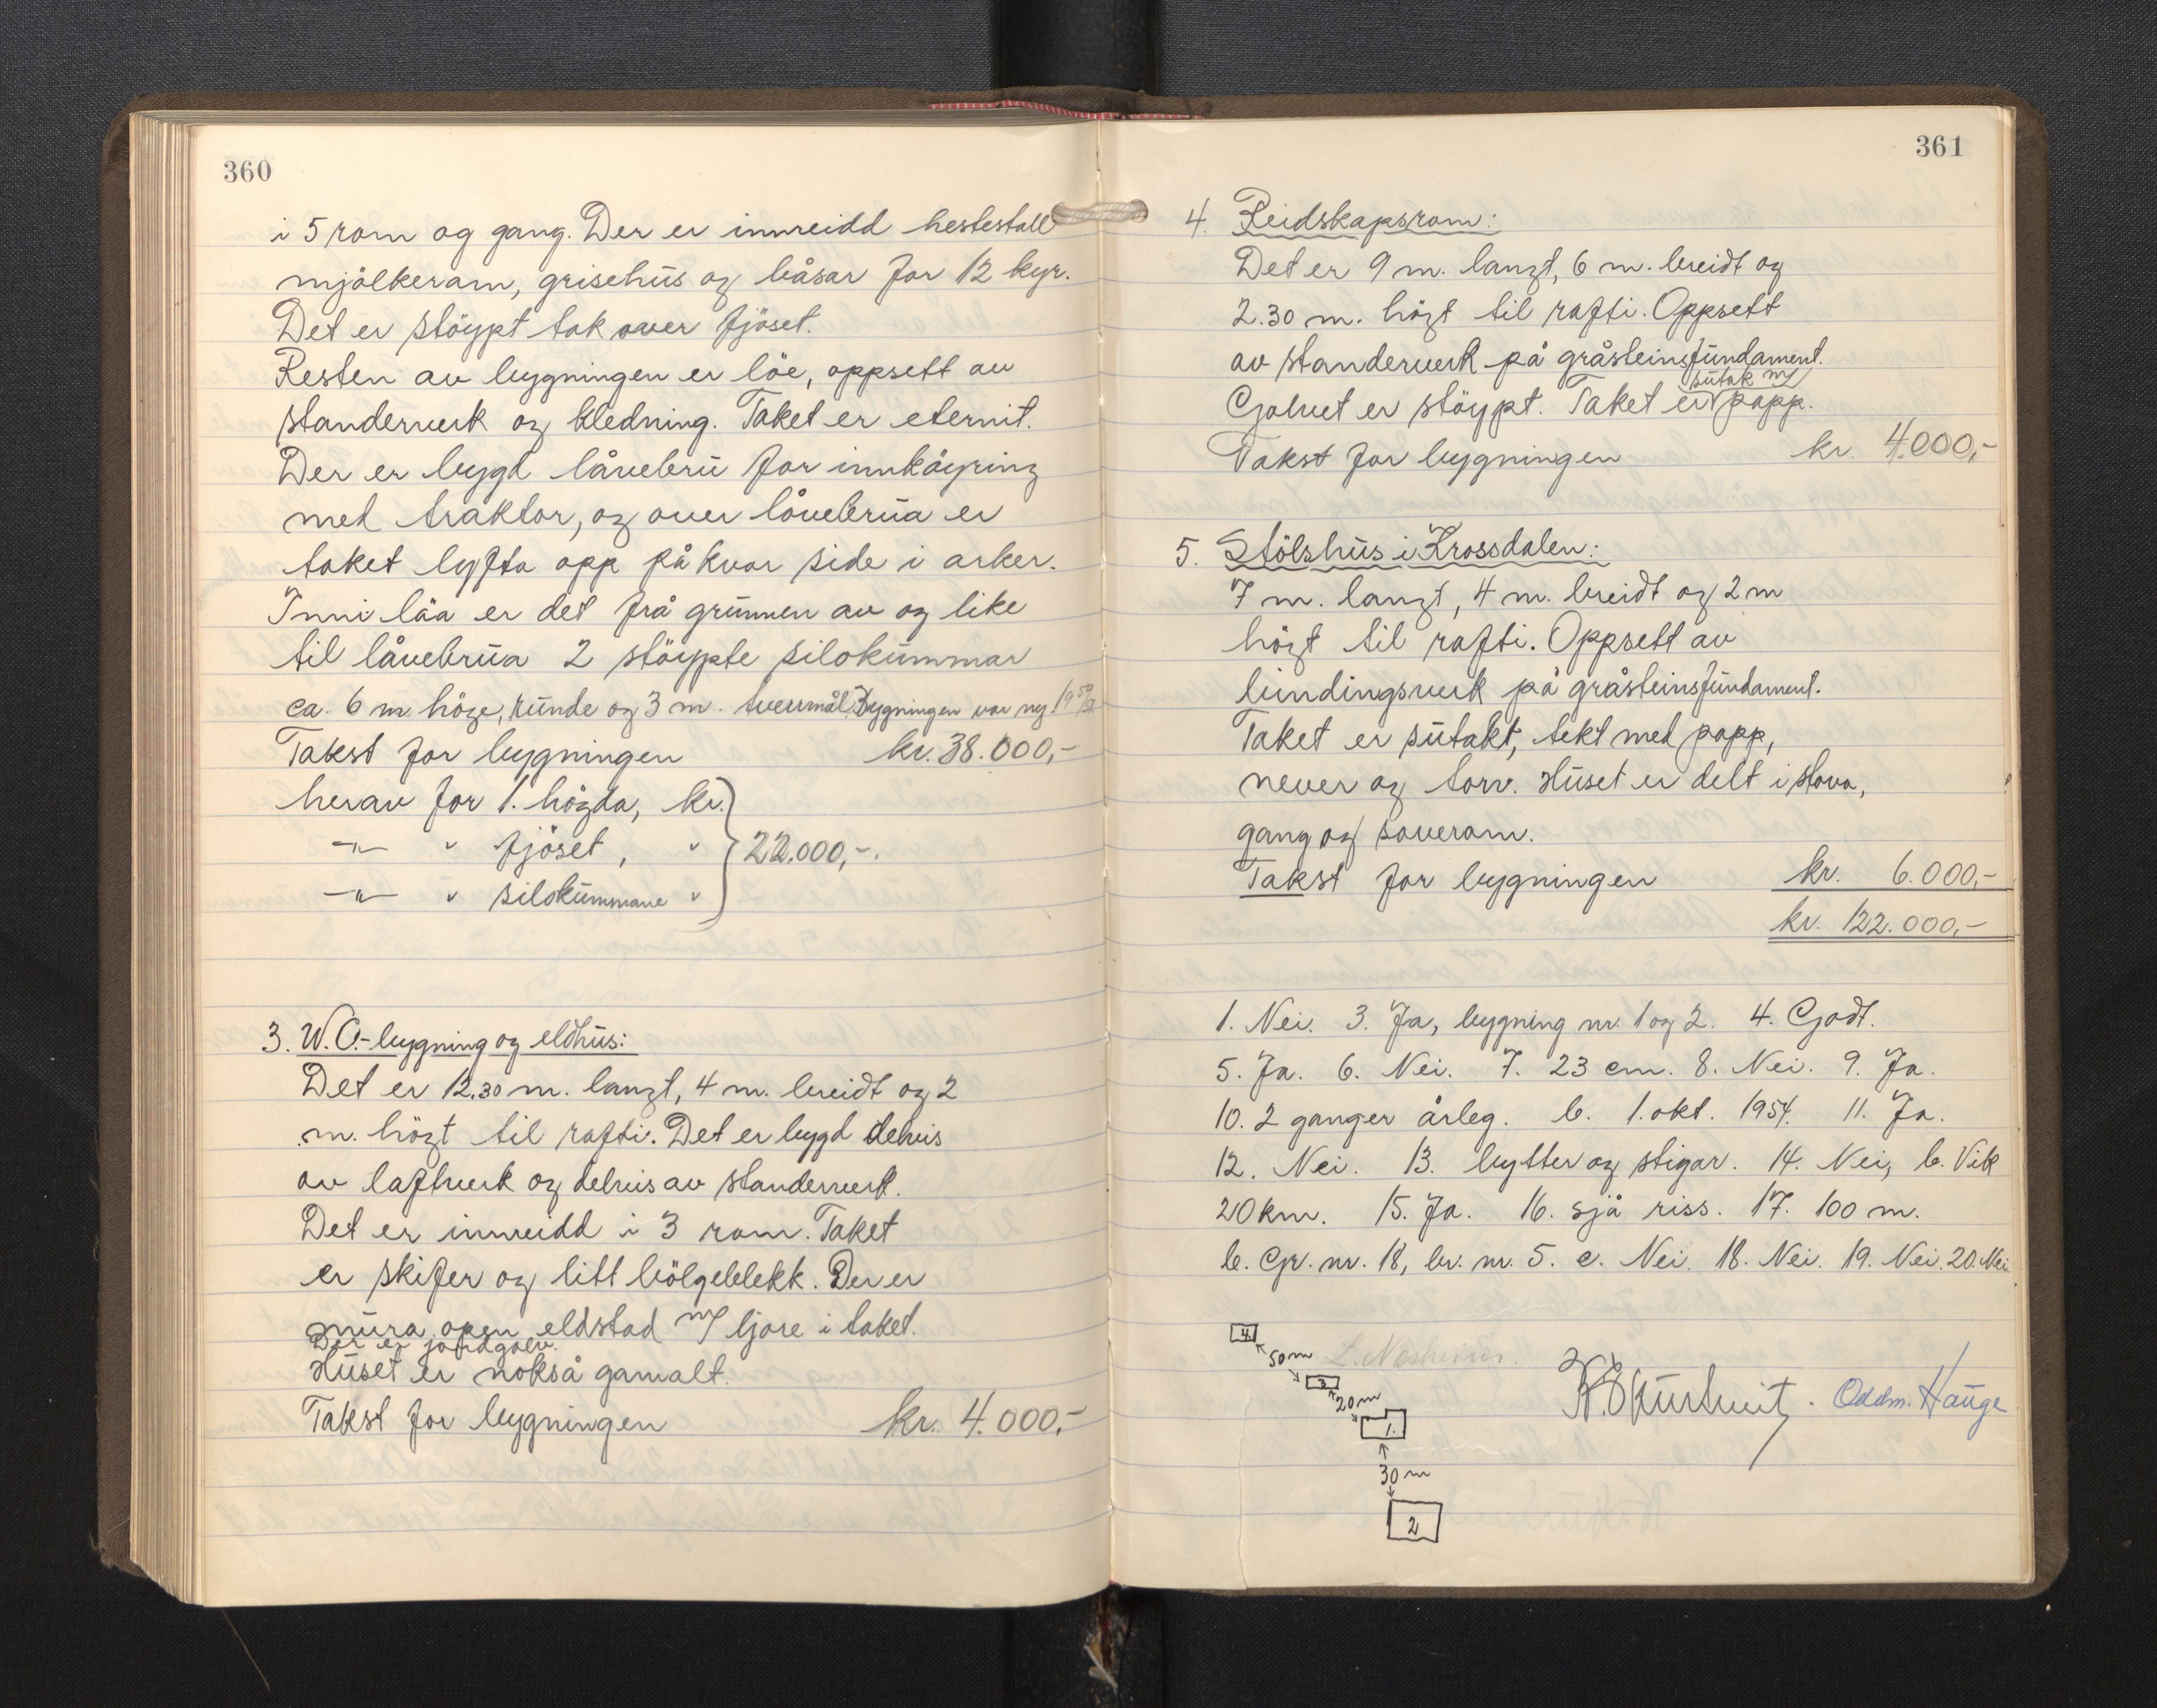 360
i 5 rom og gang. Der er innreidd hestestall
mjölkerom, grisehus og båsar for 12 kyr.
Det er stöypt tak over fjöset.
Resten av bygningen er löe, oppsett av
standerverk og kledning. Taket er eternit.
Der er bygd låvebru for innköyring
med traktor, og over låvebrua er
taket lyfta opp på kvar side i arker.
Inni löa er det frå grunnen av og like
til låvebrua 2 stöypte silokummar
ca. 6 m höge, runde og 3 m. tverrmål. Bygningen var ny
Takst for bygningen kr. 38.000,-
herav for 1. högda, kr.
-"- " fjöset, " 22.000,-.
-"- " silokummane "
3. W.C.-bygning og eldhus:
Det er 12.30 m. langt, 4 m. breidt og 2
m. högt til rafti. Det er bygd delvis
av laftverk og delvis av standerverk.
Det er innreidd i 3 rom. Taket
er skifer og litt bölgeblekk. Der er
mura open eldstad m/ ljore i taket.
Der er jordgolv.
Huset er nokså gamalt.
Takst for bygningen kr. 4.000,-
361
4. Reidskapsrom:
Det er 9 m. langt, 6 m. breidt og
2.30 m. högt til rafti. Oppsett
av standerverk på gråsteinsfundament.
sutak m/
Golvet er stöypt. Taket er papp.
Takst for bygningen kr. 4.000,-
5. Stölshus i Krossdalen:
7 m. langt, 4 m. breidt og 2 m
högt til rafti. Oppsett av
bindingsverk på gråsteinsfundament.
Taket er sutakt, tekt med papp,
never og torv. Huset er delt i stova,
gang og soverom.
Takst for bygningen kr. 6.000,-
kr. 122.000,-
1. Nei. 3. Ja, bygning nr. 1 og 2. 4. Godt.
5. Ja. 6. Nei. 7. 23 cm. 8. Nei. 9. Ja.
10. 2 ganger årleg. b. 1. okt. 1954. 11. Ja.
12. Nei. 13. bytter og stigar. 14. Nei, b. Vik
20 km. 15. Ja. 16. sjå riss. 17. 100 m.
b. Gr. nr. 18, br. nr. 5. c. Nei. 18. Nei. 19. Nei. 20. Nei.
4.
50 m L. Nesheim.
3
20 m
Oddm. Hauge
1.
30 m
2